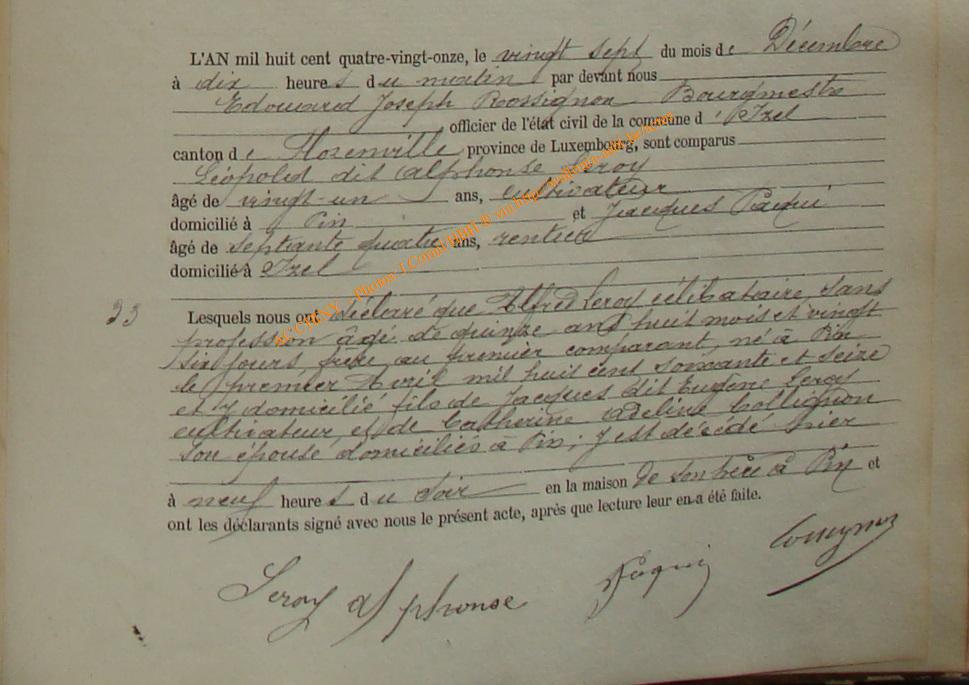 L'AN mil huit cent quatre-vingt-onze, le vingt sept du mois de Décembre
à dix heures du matin par devant nous
Edouard Joseph Rossignon Bourgmestre
officier de l'état civil de la commune d'Izel
canton de Florenville province de Luxembourg, sont comparus
Léopold dit Alphonse Leroy
âgé de vingt-un ans, cultivateur
domicilié à Pin et Jacques Paqui
âgé de septante quatre ans, rentier
domicilié à Izel
33 Lesquels nous ont déclaré que Alfred Leroy célibataire, sans
profession âgé de quinze ans huit mois et vingt
six jours, frère au premier comparant, né à Pin
le premier Avril mil huit cent soixante et seize
et y domicilié fils de Jacques dit Eugène Leroy
cultivateur, et de Catherine Adeline Collignon
son épouse domiciliés à Pin; y est décédé hier
à neuf heures du soir en la maison de son père à Pin et
ont les déclarants signé avec nous le présent acte, après que lecture leur en a été faite.
Leroy Alphonse Paqui